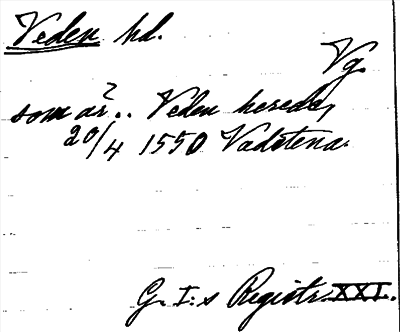 Veden hd.
Vg.
som är .. Veden herede,
20/4 1550 Vadstena.
G. I:s Registr. XXI.